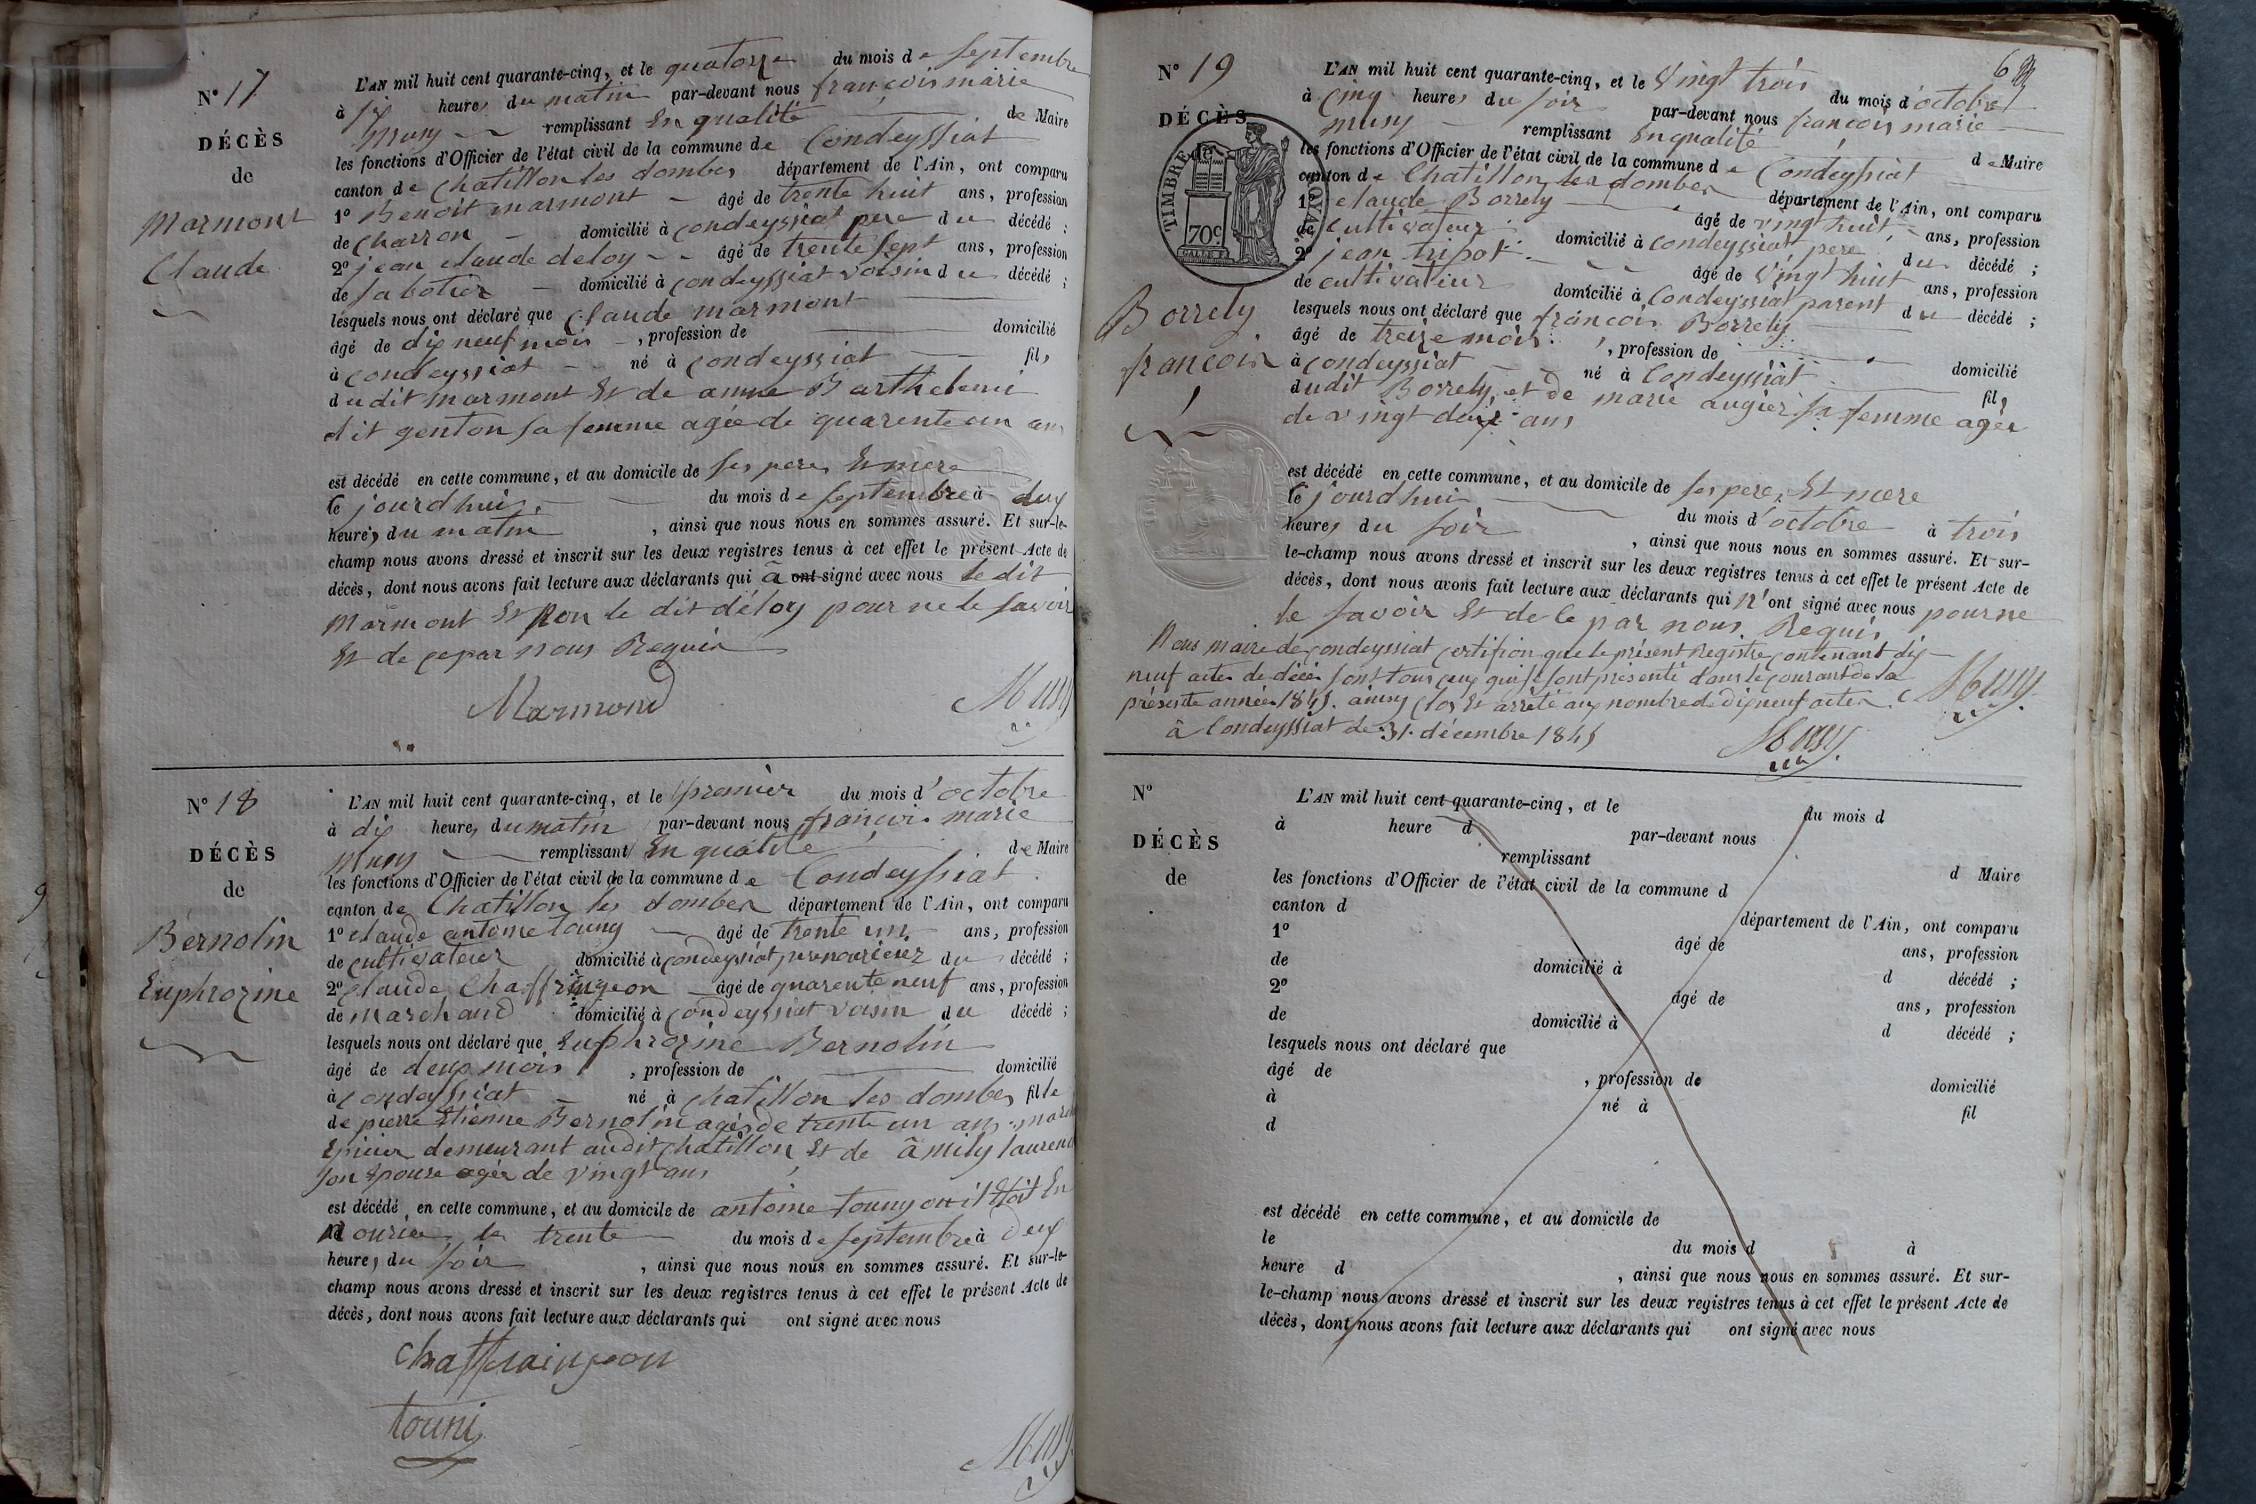 N° 17
DÉCÈS
de
Marmont
Claude
L'AN mil huit cent quarante-cinq, et le quatorze du mois de septembre
à six heures du matin par-devant nous françois marie
Musy remplissant En qualité de Maire
les fonctions d'Officier de l'état civil de la commune de Condeyssiat
canton de Chatillon les dombes département de l'Ain, ont comparu
1° Benoit marmont âgé de trente huit ans, profession
de charron domicilié à condeyssiat pere du décédé ;
2° jean claude deloy âgé de trente sept ans, profession
de sabotier domicilié à condeyssiat voisin du décédé ;
lesquels nous ont déclaré que Claude marmont
âgé de dix neuf mois , profession de domicilié
à condeyssiat né à condeyssiat fils
dudit marmont Et de anne Barthelemi
dit genton sa femme agée de quarente un ans
est décédé en cette commune, et au domicile de ses peres Et mere
le jourdhui du mois de septembre à deux
heures du matin , ainsi que nous nous en sommes assuré. Et sur-le-
champ nous avons dressé et inscrit sur les deux registres tenus à cet effet le présent Acte de
décès, dont nous avons fait lecture aux déclarants qui a ont signé avec nous le dit
Marmont Et non le dit déloy pour ne le savoir
Et de ce par nous Requis
Marmond
Musy
N° 18
DÉCÈS
de
Bernolin
Euphrozine
L'AN mil huit cent quarante-cinq, et le premier du mois d'octobre
à dix heures du matin par-devant nous françois marie
Musy remplissant En qualité de Maire
les fonctions d'Officier de l'état civil de la commune de Condeyssiat
canton de Chatillon les dombes département de l'Ain, ont comparu
1° claude antoine touny âgé de trente un ans, profession
de cultivateur domicilié à condeyssiat pere nouricier du décédé ;
2° claude Chaffringeon âgé de quarente neuf ans, profession
de marchand domicilié à condeyssiat voisin du décédé ;
lesquels nous ont déclaré que Euphrozine Bernolin
âgé de deux mois , profession de domicilié
à condeyssiat né à chatillon les dombes fille
de pierre Etienne Bernolin agés de trente un ans
Epicier demeurant audit chatillon Et de âmily laurend
son Epouse agée de vingt ans
est décédé en cette commune, et au domicile de antoine touny ou il Etoit En
Nourice le trente du mois de septembre à deux
heures du soir , ainsi que nous nous en sommes assuré. Et sur-le-
champ nous avons dressé et inscrit sur les deux registres tenus à cet effet le présent Acte de
décès, dont nous avons fait lecture aux déclarants qui ont signé avec nous
chaffraingeon
touni
Musy
N° 19
DÉCÈS
de
TIMBRE ROYAL
70c
Borrely
francois
L'AN mil huit cent quarante-cinq, et le Vingt trois du mois d'octobre
à cinq heures du soir par-devant nous françois marie
musy remplissant En qualité de Maire
les fonctions d'Officier de l'état civil de la commune de Condeyssiat
canton de Chatillon les dombes département de l'Ain, ont comparu
1° claude Borrely âgé de vingt huit ans, profession
de cultivateur domicilié à condeyssiat pere du décédé ;
2° jean tripot âgé de vingt huit ans, profession
de cultivateur domicilié à Condeyssiat parent du décédé ;
lesquels nous ont déclaré que françois Borrely
âgé de treize mois , profession de domicilié
à condeyssiat né à Condeyssiat fils
dudit Borrely, et de marie augier sa femme agée
de vingt deux ans
est décédé en cette commune, et au domicile de ses peres Et mere
le jourdhui du mois d'octobre à trois
heures du soir , ainsi que nous nous en sommes assuré. Et sur-
le-champ nous avons dressé et inscrit sur les deux registres tenus à cet effet le présent Acte de
décès, dont nous avons fait lecture aux déclarants qui n'ont signé avec nous pour ne
le savoir Et de ce par nous Requis
Nous maire de condeyssiat certifion que le présent Registre contenant dix
neuf actes de décès sont tous ceux qui se sont présenté dans le courant de la
présente année 1845. ainsy clos Et arrêté aux nombre de dix neuf actes
à Condeyssiat le 31 décembre 1845
Musy
Musy
N°
DÉCÈS
de
L'AN mil huit cent quarante-cinq, et le du mois d
à heure d par-devant nous
remplissant d Maire
les fonctions d'Officier de l'état civil de la commune d
canton d département de l'Ain, ont comparu
1° âgé de ans, profession
de domicilié à d décédé ;
2° âgé de ans, profession
de domicilié à d décédé ;
lesquels nous ont déclaré que
âgé de , profession de domicilié
à né à fil
d
est décédé en cette commune, et au domicile de
le du mois d à
heure d , ainsi que nous nous en sommes assuré. Et sur-
le-champ nous avons dressé et inscrit sur les deux registres tenus à cet effet le présent Acte de
décès, dont nous avons fait lecture aux déclarants qui ont signé avec nous